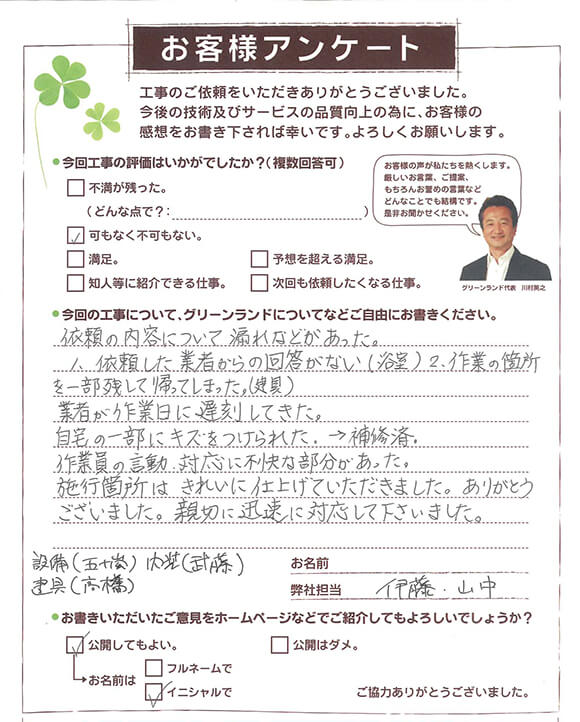 お客様アンケート
工事のご依頼をいただきありがとうございました。
今後の技術及びサービスの品質向上の為に、お客様の
感想をお書き下されば幸いです。よろしくお願いします。
●今回工事の評価はいかがでしたか?(複数回答可)
不満が残った。
(どんな点で?: )
可もなく不可もない。
満足。
予想を超える満足。
知人等に紹介できる仕事。
次回も依頼したくなる仕事。
お客様の声が私たちを熱くします。
厳しいお言葉、ご提案、
もちろんお誉めの言葉など
どんなことでも結構です。
是非お聞かせください。
グリーンランド代表 川村英之
●今回の工事について、グリーンランドについてなどご自由にお書きください。
依頼の内容について漏れなどがあった。
1、依頼した業者からの回答がない(浴室) 2、作業の箇所
を一部残して帰ってしまった。(建具)
業者が作業日に遅刻してきた。
自宅の一部にキズをつけられた. →補修済.
作業員の言動、対応に不快な部分があった。
施行箇所はきれいに仕上げていただきました。ありがとう
ございました。親切に迅速に対応して下さいました。
設備(五十嵐) 内装(武藤)
建具(高橋)
お名前
弊社担当 伊藤・山中
●お書きいただいたご意見をホームページなどでご紹介してもよろしいでしょうか?
公開してもよい。
公開はダメ。
お名前は
フルネームで
イニシャルで
ご協力ありがとうございました。